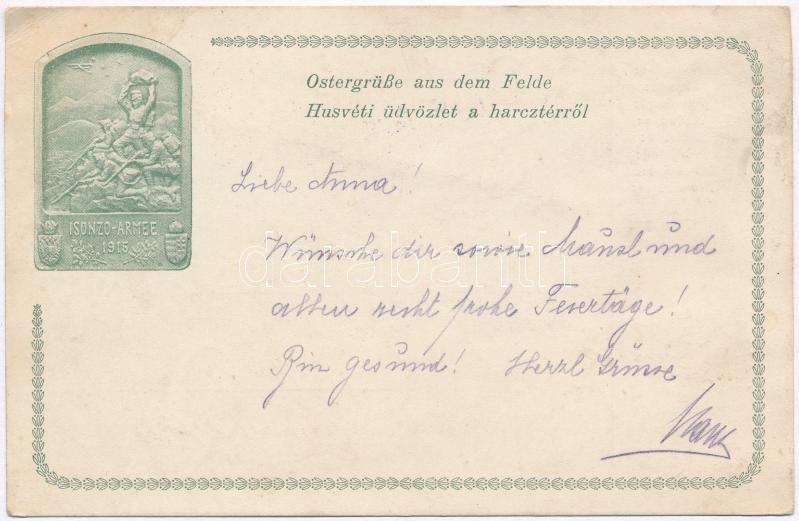 Ostergrüße aus dem Felde
Husvéti üdvözlet a harcztérről
ISONZO-ARMEE
1915
Liebe Anna!
Wünsche dir sowie Mausl und
allen recht frohe Feiertäge!
Bin gesund! Herzl Grüsse
Hans
darabanth